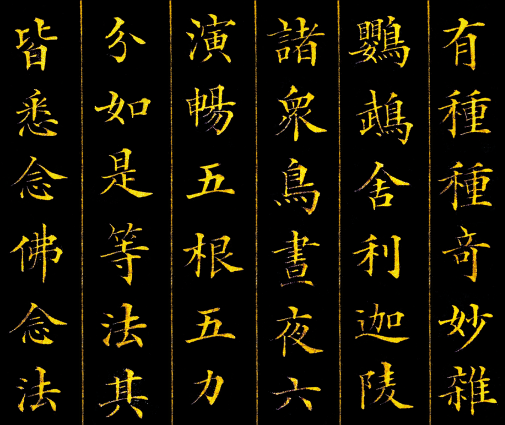 有種種奇妙雜
鸚鵡舍利迦陵
諸眾鳥晝夜六
演暢五根五力
分如是等法其
皆悉念佛念法